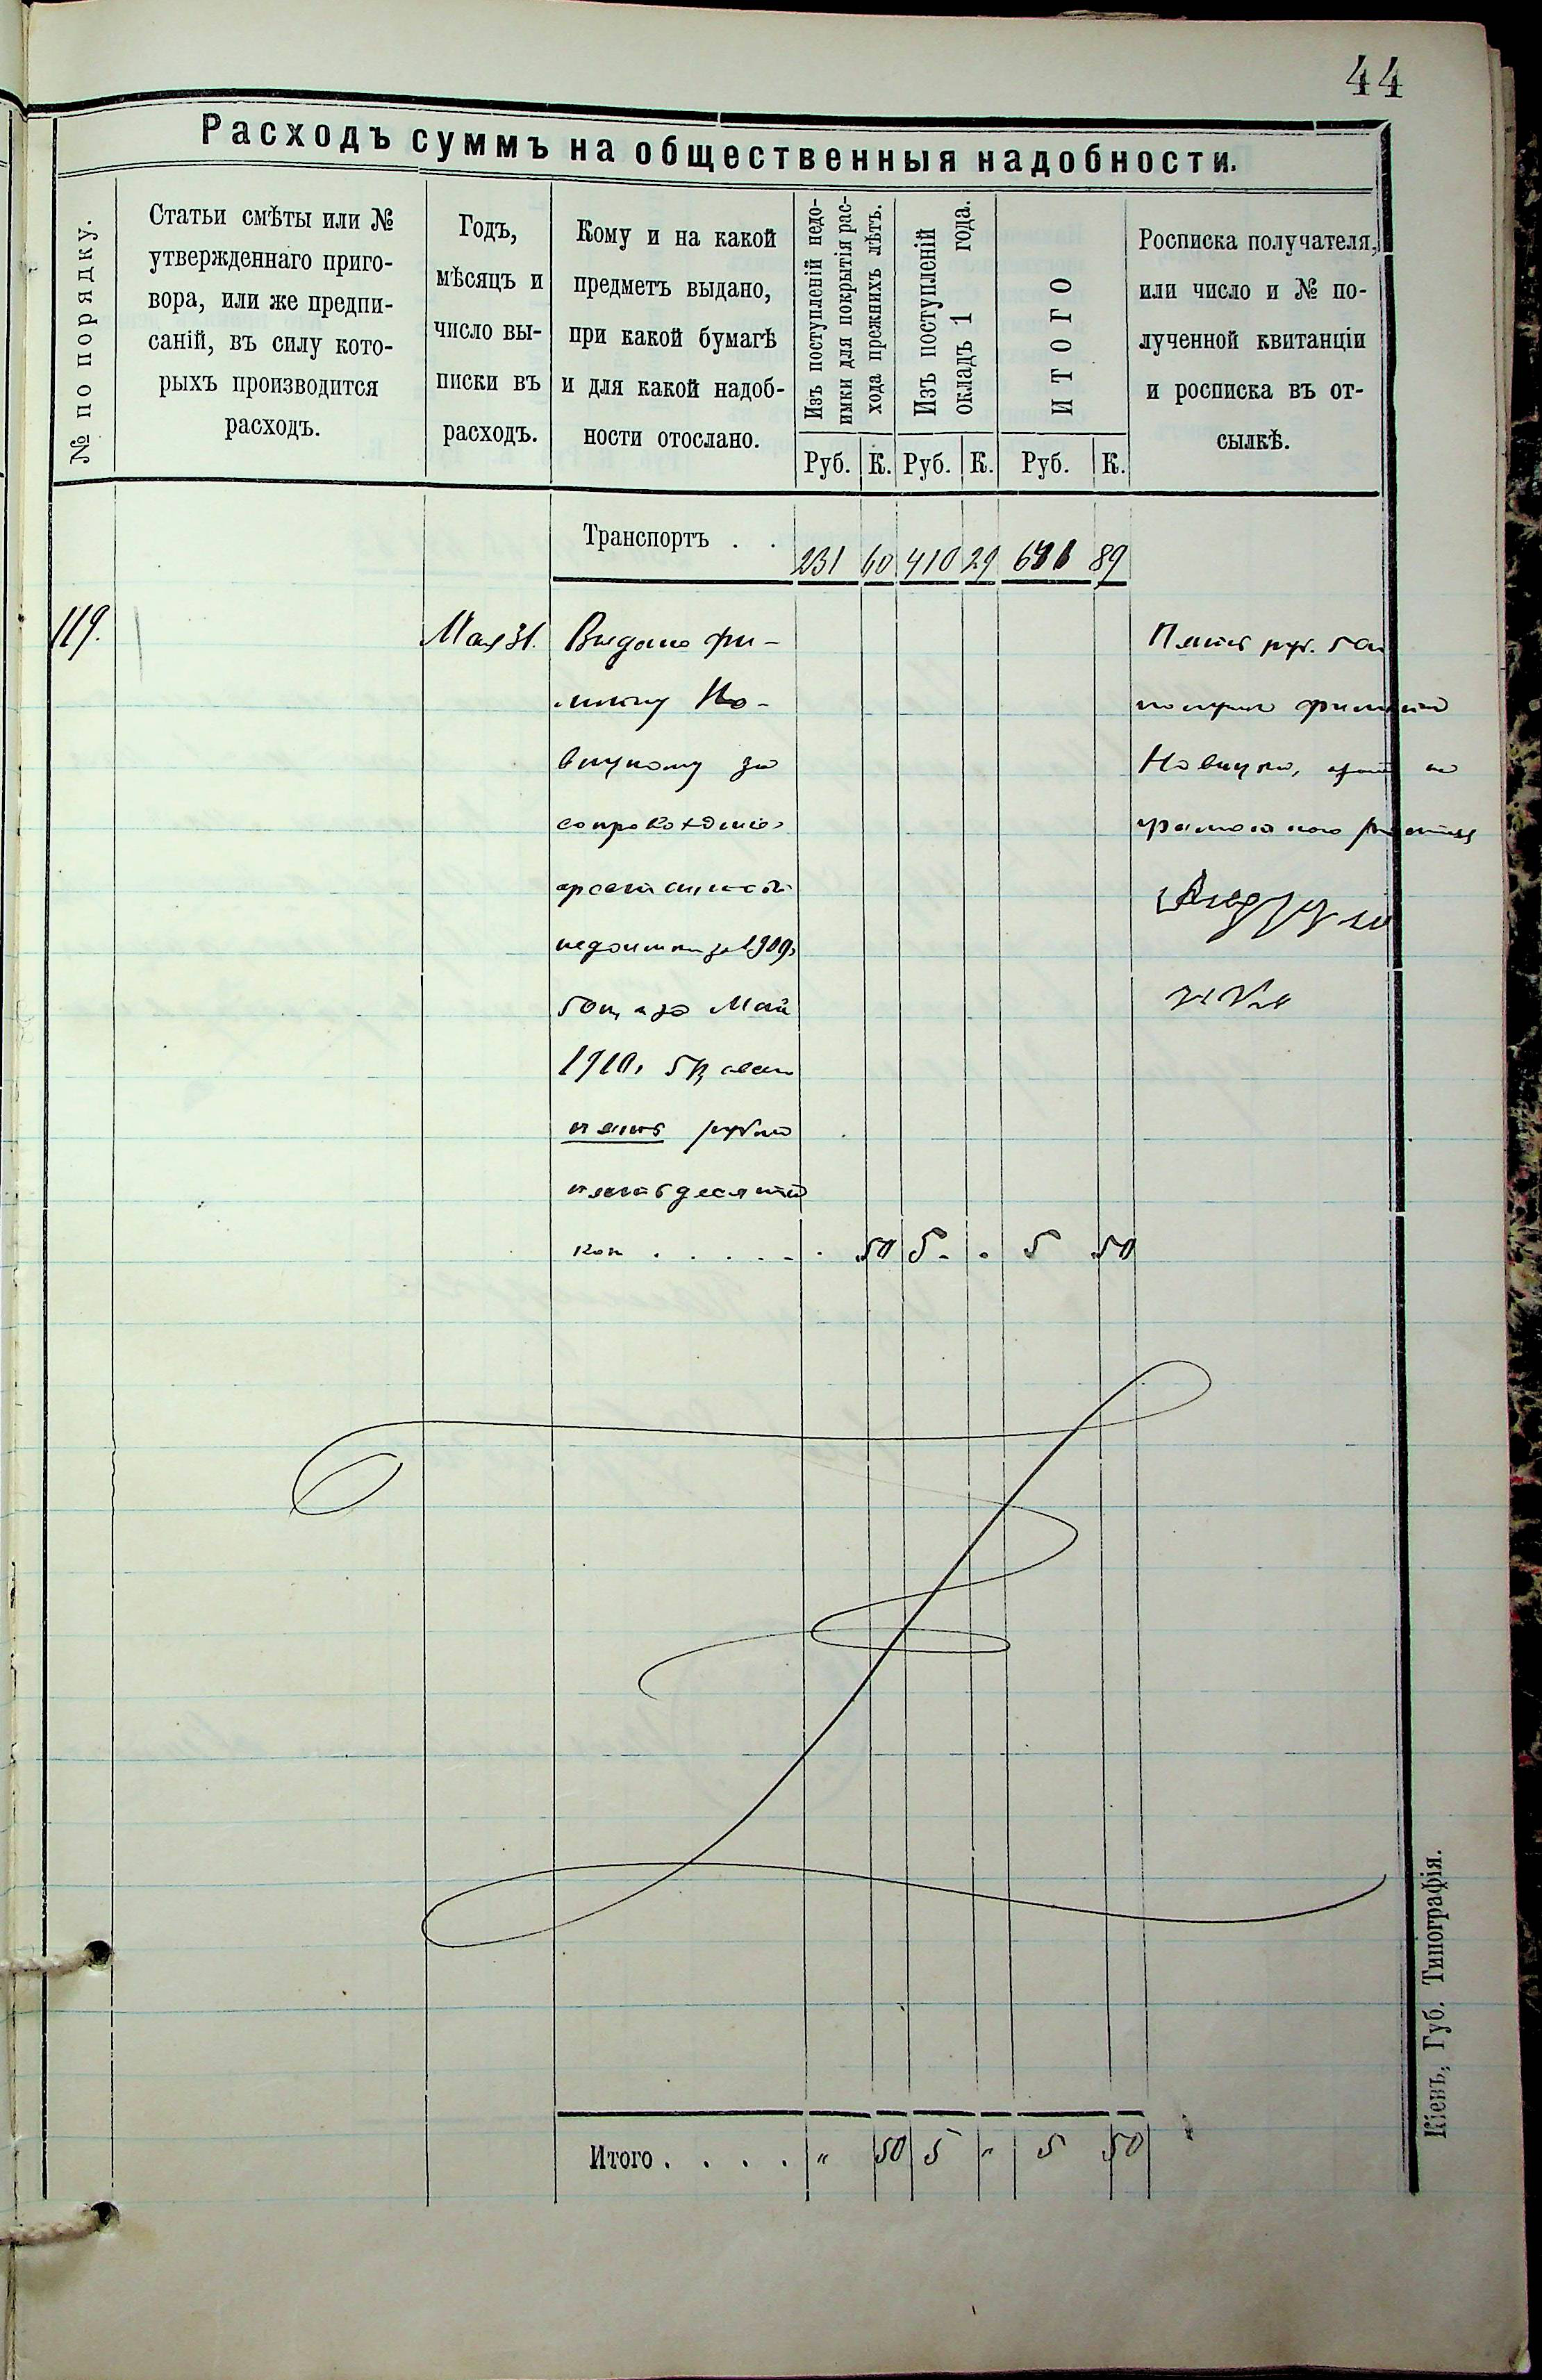 44
Расходъ суммъ на общественныя надобности.
№ по порядку.
Статьи смѣты или №
утвержденнаго приго-
вора, или же предпи-
саній, въ силу кото-
рыхъ производится
расходъ.
Годъ,
мѣсяцъ и
число вы-
писки въ
расходъ.
Кому и на какой
предметъ выдано,
при какой бумагѣ
и для какой надоб-
ности отослано.
Изъ поступленій недо-
имки для покрытія рас-
хода прежнихъ лѣтъ.
Изъ поступленій
окладъ 1 года.
ИТОГО
Росписка получателя,
или число и № по-
лученной квитанціи
и росписка въ от-
сылкѣ.
Руб. К. Руб. К. Руб. К.
Транспортъ . . 231 60 410 29 641 89
119. Мая 31. Выдано
Но-
вицкому за
сопровожденіе
недоимки за 1909
50 к, а за Май
1910 5 р
пять рублей
пятьдесятъ
коп . . . . . . 50 5 - . 5 50
Пять руб. 50 к
Новицкій,
Итого . . . . " 50 5 " 5 50
Кіевъ, Губ. Типографія.